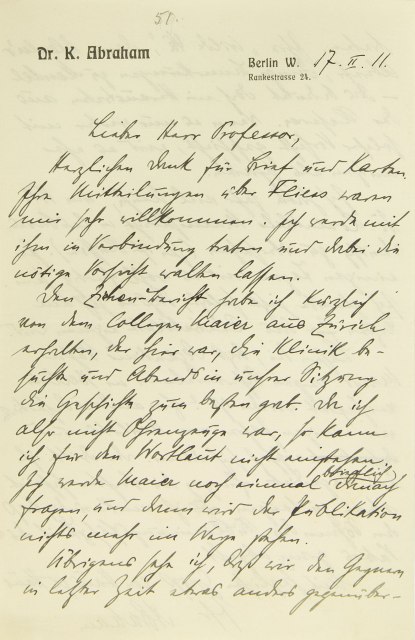 51.
Dr. K. Abraham
Berlin W. 17. II. 11.
Rankestrasse 24.
Lieber Herr Professor,
Herzlichen Dank für Brief und Karten.
Ihre Mitteilungen über Fliess waren
mir sehr willkommen. Ich werde mit
ihm in Verbindung treten und dabei die
nötige Vorsicht walten lassen.
Den Ziehen-Bericht habe ich kürzlich
von dem Collegen Maier aus Zürich
erhalten, der hier war, die Klinik be-
suchte und Abends in unsrer Sitzung
die Geschichte zum besten gab. Da ich
also nicht Ohrenzeuge war, so kann
ich für den Wortlaut nicht einstehen.
Ich werde Maier noch einmal
fragen und dann wird der Publikation
nichts mehr im Wege stehen.
Übrigens sehe ich, daß wir den Gegnern
in letzter Zeit etwas anders gegenüber-